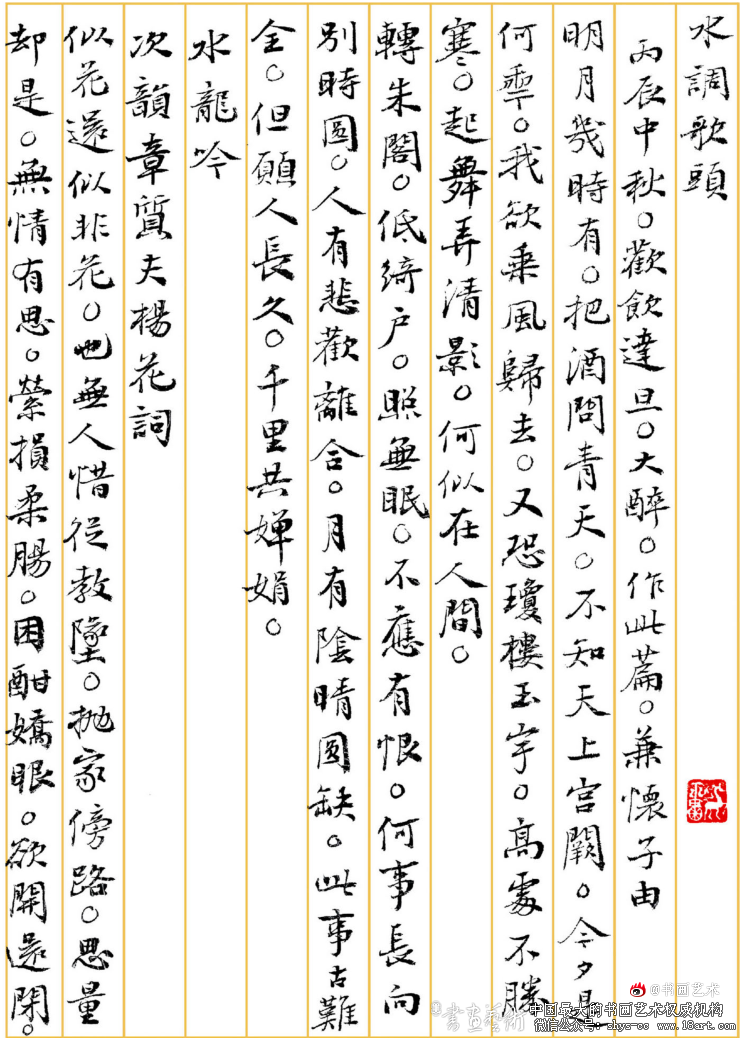 水調歌頭
丙辰中秋。歡飲達旦。大醉。作此篇。兼懷子由
明月幾時有。把酒問青天。不知天上宮闕。今夕是
何秊。我欲乘風歸去。又恐瓊樓玉宇。高處不勝
寒。起舞弄清影。何似在人間。
轉朱閣。低綺户。照無眠。不應有恨。何事長向
別時圓。人有悲歡離合。月有陰晴圓缺。此事古難
全。但願人長久。千里共嬋娟。
水龍吟
次韻章質夫楊花詞
似花還似非花。也無人惜從教墜。抛家傍路。思量
却是。無情有思。縈損柔腸。困酣嬌眼。欲開還閉。
@书画艺术
書畫藝術
中国最大的书画艺术权威机构
微信公众号：shys-cc www.18art.com